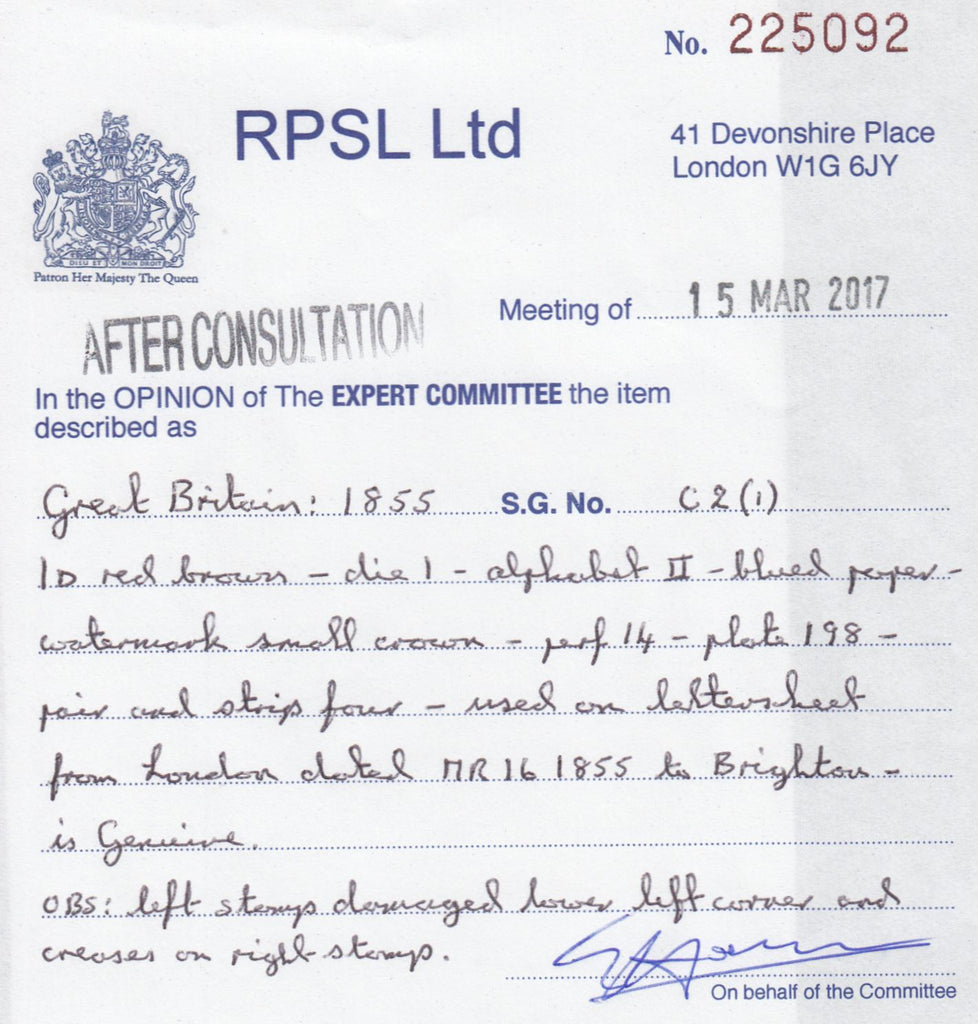 No. 225092
RPSL Ltd
41 Devonshire Place
London W1G 6JY
DIEU ET MON DROIT
Patron Her Majesty The Queen
Meeting of 15 MAR 2017
AFTER CONSULTATION
In the OPINION of The EXPERT COMMITTEE the item
described as
Great Britain: 1855 S.G. No. C2(1)
1D red brown - die 1 - alphabet II - blued paper -
watermark small crown - perf 14 - plate 198 -
pair and strip four - used on lettersheet
from London dated MR 16 1855 to Brighton -
is Genuine.
OBS: left stamps damaged lower left corner and
creases on right stamp.
On behalf of the Committee